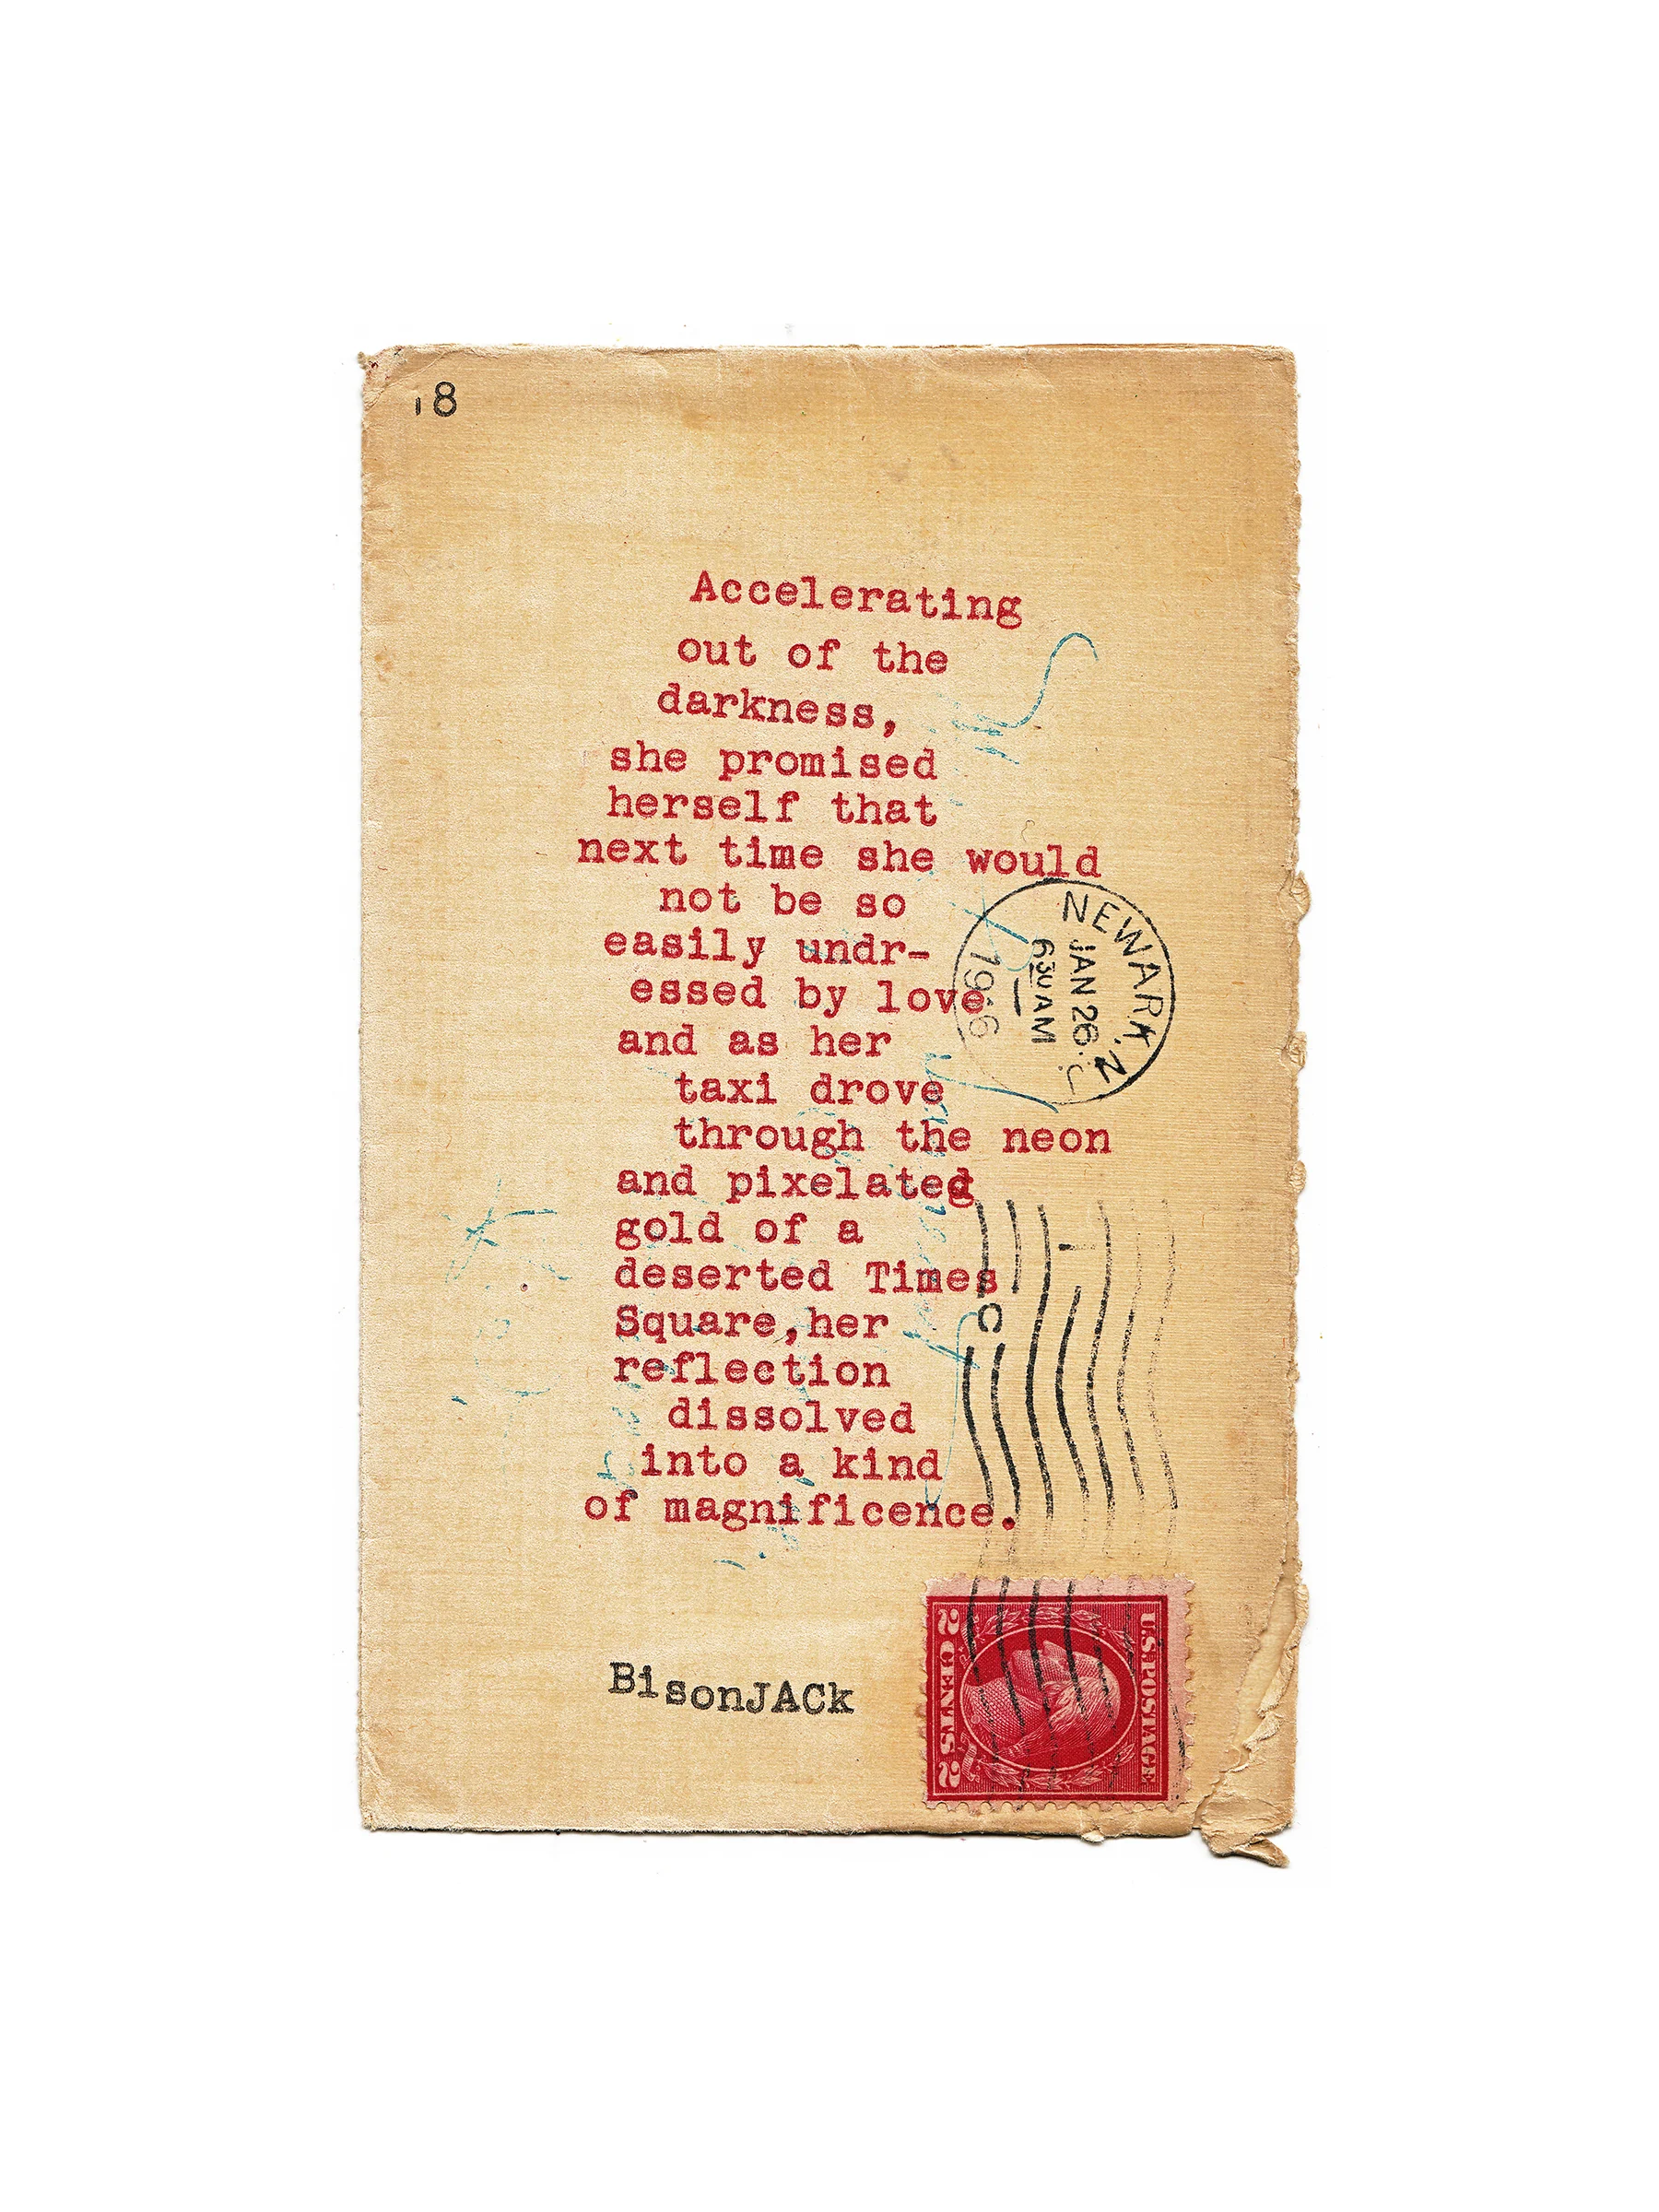 18
Accelerating
out of the
darkness,
she promised
herself that
next time she would
not be so
easily undr-
essed by love
and as her
taxi drove
through the neon
and pixelated
gold of a
deserted Times
Square,her
reflection
dissolved
into a kind
of magnificence.
NEWARK, N.J.
JAN 26
630 AM
BisonJACk
U.S. POSTAGE
2 CENTS 2